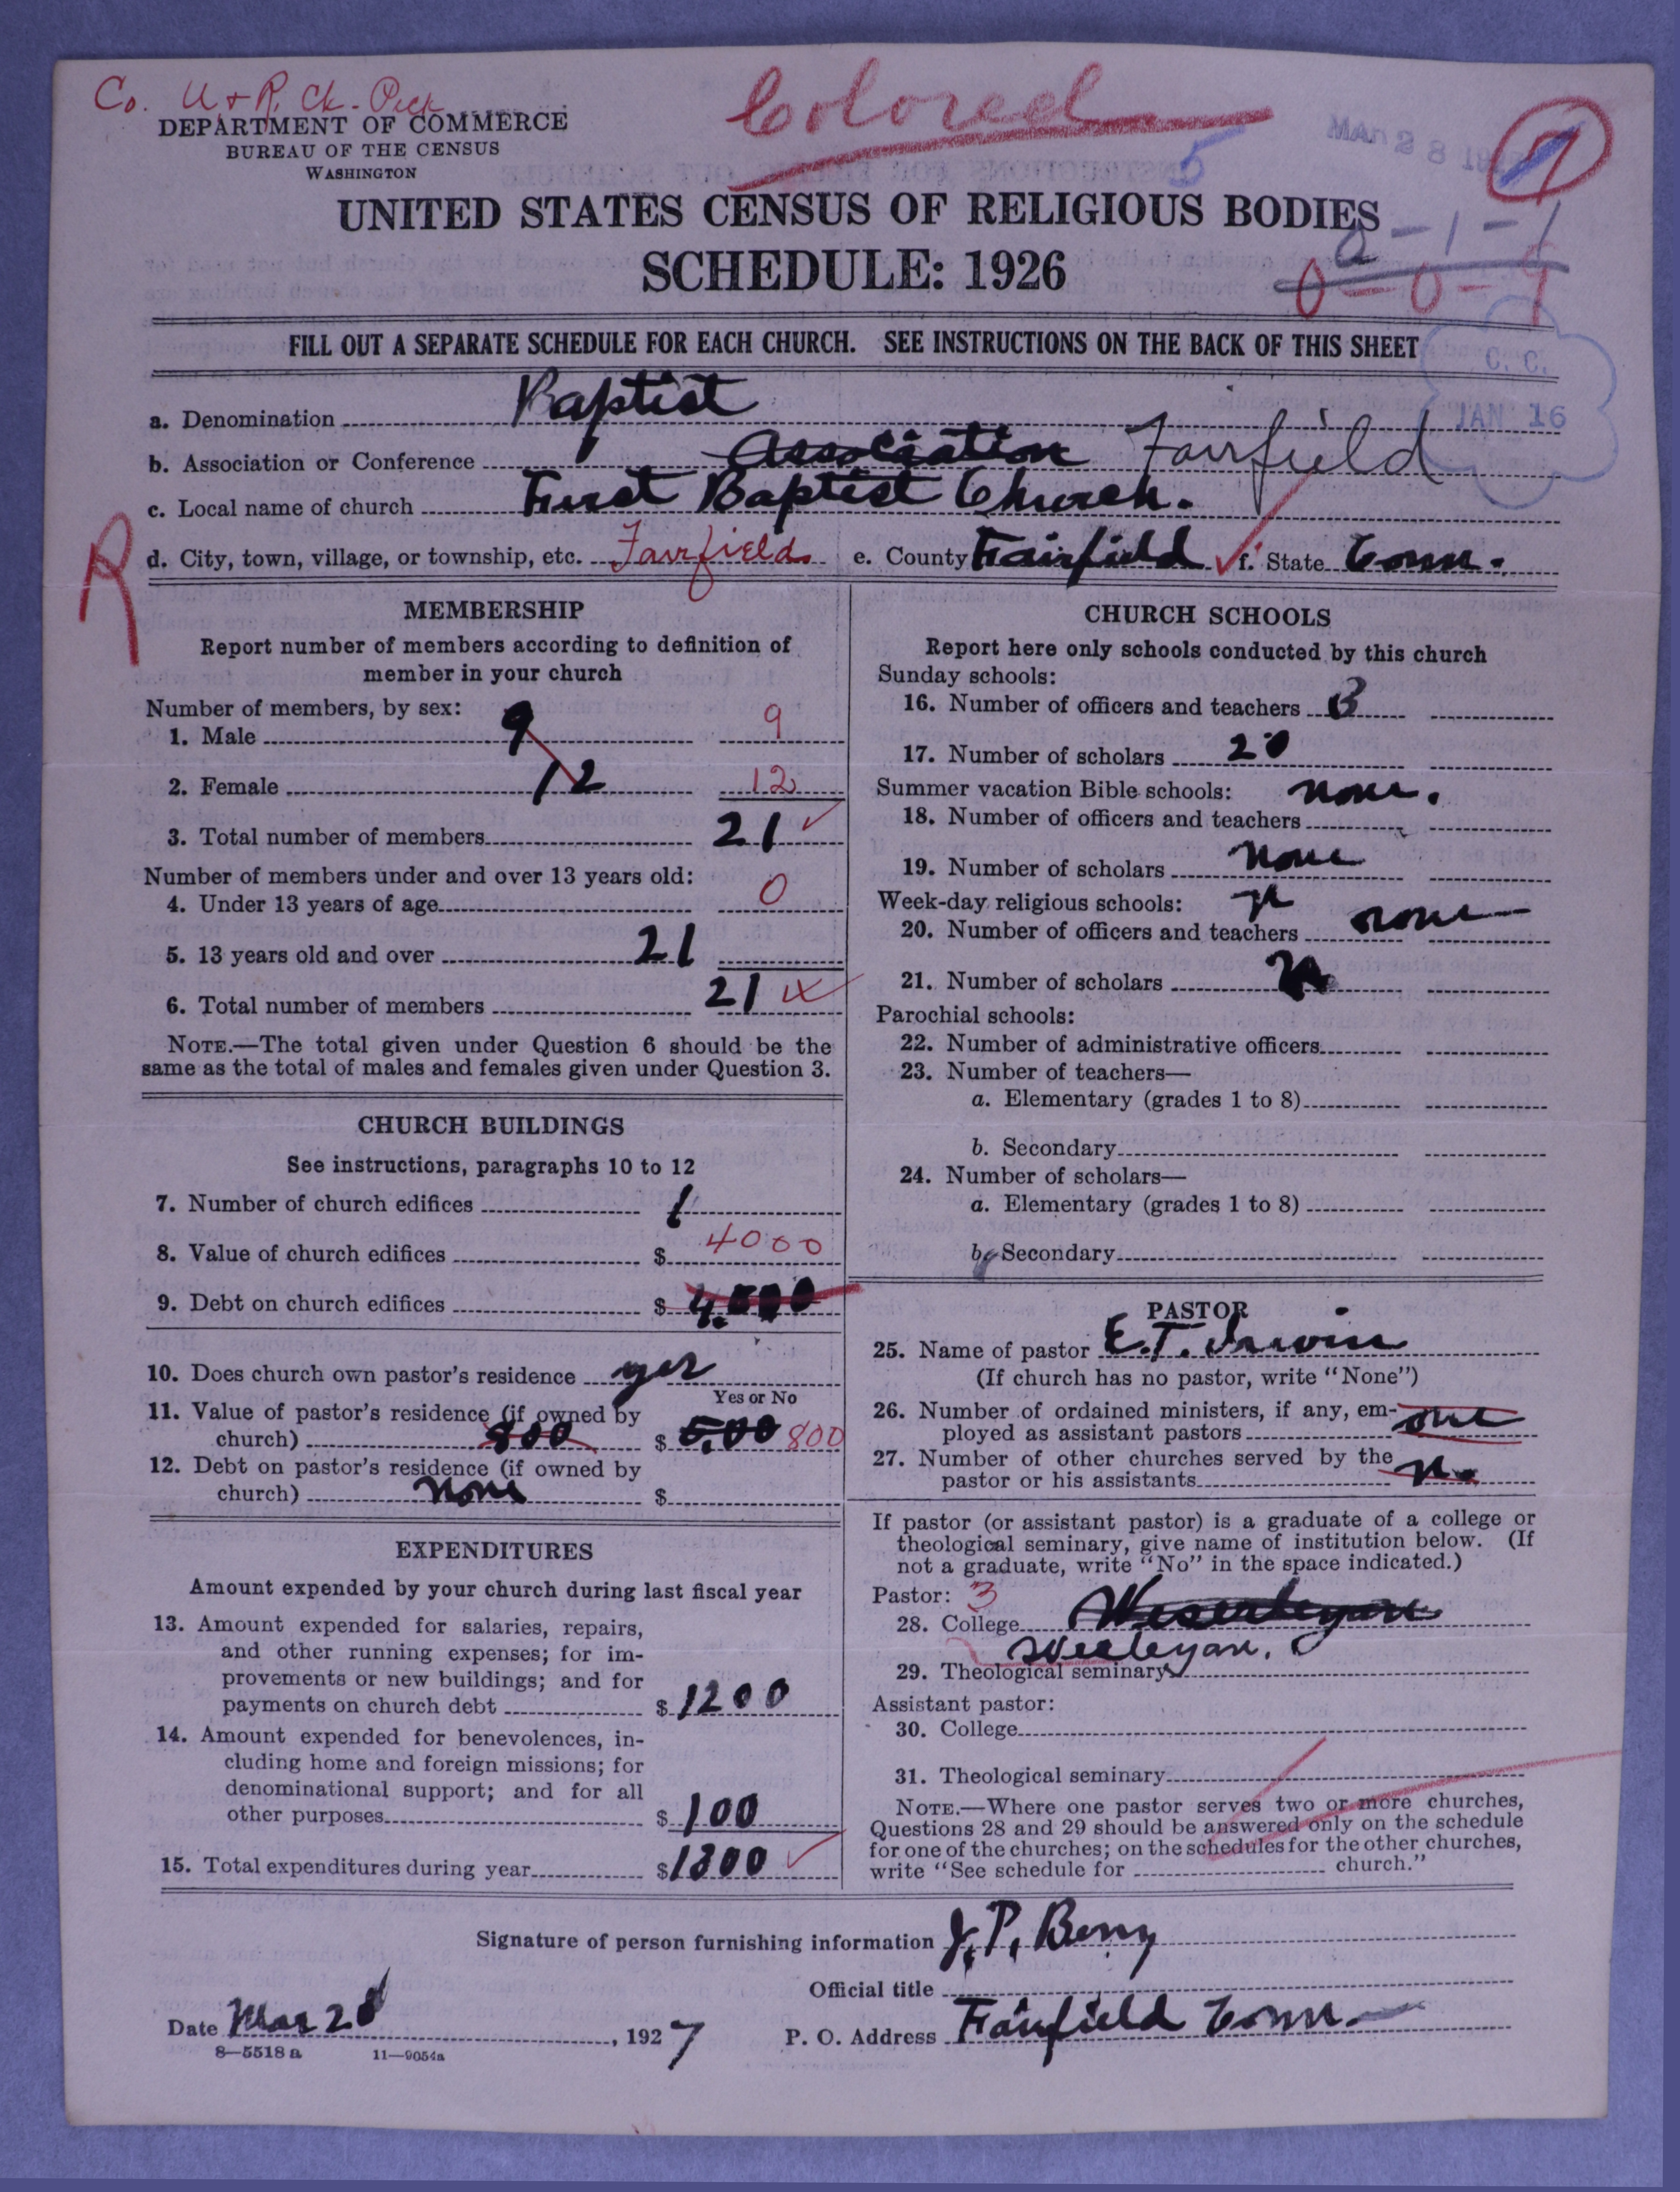 Co. U + R. Ck. Peck
Colored
DEPARTMENT OF COMMERCE
BUREAU OF THE CENSUS
WASHINGTON
5
7
UNITED STATES CENSUS OF RELIGIOUS BODIES
0-1-1
SCHEDULE: 1926
0-0-9
FILL OUT A SEPARATE SCHEDULE FOR EACH CHURCH. SEE INSTRUCTIONS ON THE BACK OF THIS SHEET
C. C.
JAN 16
a. Denomination Baptist
b. Association or Conference Association Fairfield
c. Local name of church First Baptist Church.
R
d. City, town, village, or township, etc. Fairfield e. County Fairfield f. State Conn.
MEMBERSHIP
Report number of members according to definition of
member in your church
Number of members, by sex:
1. Male 9 9
2. Female 12 12
3. Total number of members 21
Number of members under and over 13 years old:
4. Under 13 years of age 0
5. 13 years old and over 21
6. Total number of members 21
NOTE.—The total given under Question 6 should be the
same as the total of males and females given under Question 3.
CHURCH BUILDINGS
See instructions, paragraphs 10 to 12
7. Number of church edifices 1
8. Value of church edifices $ 4000
9. Debt on church edifices $ 4,000
10. Does church own pastor's residence yes
Yes or No
11. Value of pastor's residence (if owned by
church) 800 $ 800
12. Debt on pastor's residence (if owned by
church) None $
EXPENDITURES
Amount expended by your church during last fiscal year
13. Amount expended for salaries, repairs,
and other running expenses; for im-
provements or new buildings; and for
payments on church debt $ 1200
14. Amount expended for benevolences, in-
cluding home and foreign missions; for
denominational support; and for all
other purposes $ 100
15. Total expenditures during year $ 1300
CHURCH SCHOOLS
Report here only schools conducted by this church
Sunday schools:
16. Number of officers and teachers 3
17. Number of scholars 20
Summer vacation Bible schools: none.
18. Number of officers and teachers
19. Number of scholars none
Week-day religious schools:
20. Number of officers and teachers none
21. Number of scholars
Parochial schools:
22. Number of administrative officers
23. Number of teachers—
a. Elementary (grades 1 to 8)
b. Secondary
24. Number of scholars—
a. Elementary (grades 1 to 8)
b. Secondary
PASTOR
25. Name of pastor E.T. Irwin
(If church has no pastor, write "None")
26. Number of ordained ministers, if any, em-
ployed as assistant pastors one
27. Number of other churches served by the
pastor or his assistants no
If pastor (or assistant pastor) is a graduate of a college or
theological seminary, give name of institution below. (If
not a graduate, write "No" in the space indicated.)
Pastor: 3
28. College
Wesleyan.
29. Theological seminary
Assistant pastor:
30. College
31. Theological seminary
NOTE.—Where one pastor serves two or more churches,
Questions 28 and 29 should be answered only on the schedule
for one of the churches; on the schedules for the other churches,
write "See schedule for church."
Signature of person furnishing information J. P. Berry
Official title
Date Mar 28, 1927 P. O. Address Fairfield Conn.
8—5518 a 11—9054a